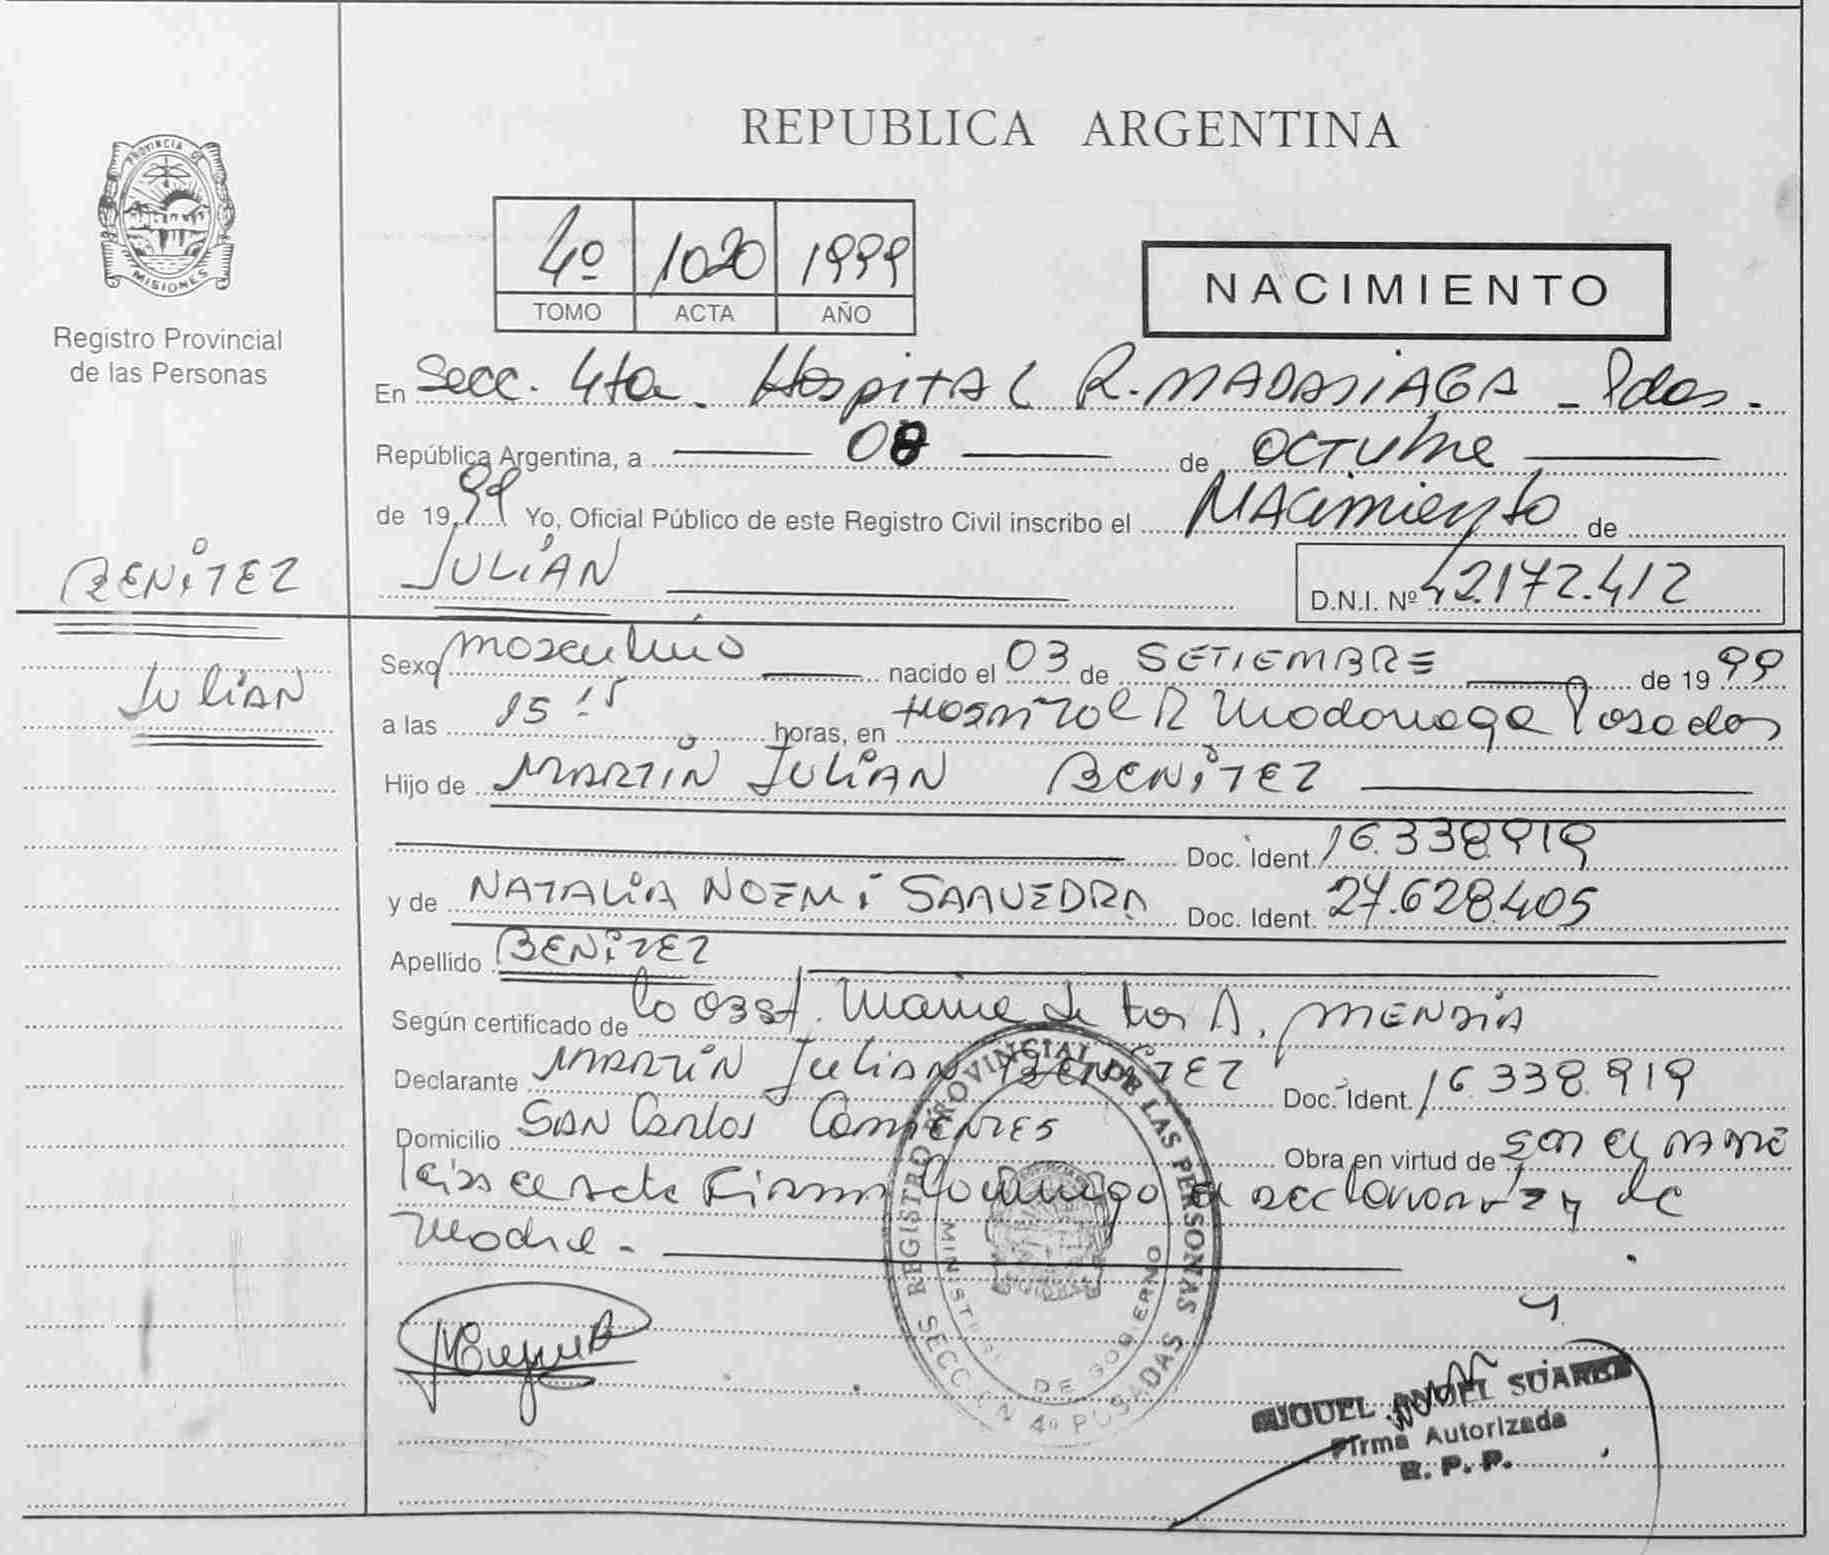 REPUBLICA ARGENTINA
PROVINCIA DE
MISIONES
Registro Provincial
de las Personas
4º 1020 1999
TOMO ACTA AÑO
NACIMIENTO
En Secc. 4ta. Hospital R. MADARIAGA - Pdas.
República Argentina, a 08 de OCTUbre
de 1999 Yo, Oficial Público de este Registro Civil inscribo el NACimiento de
JULIÁN
D.N.I. Nº 42.172.412
BENíTEZ
JuliÁN
Sexo masculino nacido el 03 de SETIEMBRE de 1999
a las 15:15 horas, en Hospital R Madariaga Posadas
Hijo de MARTÍN JULIÁN BENíTEZ
Doc. Ident. 16.338.919
y de NATALIA NOEMí SAAVEDRA Doc. Ident. 27.628.405
Apellido BENíTEZ
Según certificado de la obst. Maria de los A. MENDÍA
Declarante MARTÍN Julián BENÍTEZ Doc. Ident. 16.338.919
Domicilio SAN Carlos Corrientes Obra en virtud de ser el padre
Leída el acta Firma conmigo el declarante y la
Madre.
REGISTRO PROVINCIAL DE LAS PERSONAS
MINISTERIO DE GOBIERNO
SECCIÓN 4º POSADAS
MIGUEL ANGEL SUAREZ
Firma Autorizada
R. P. P.